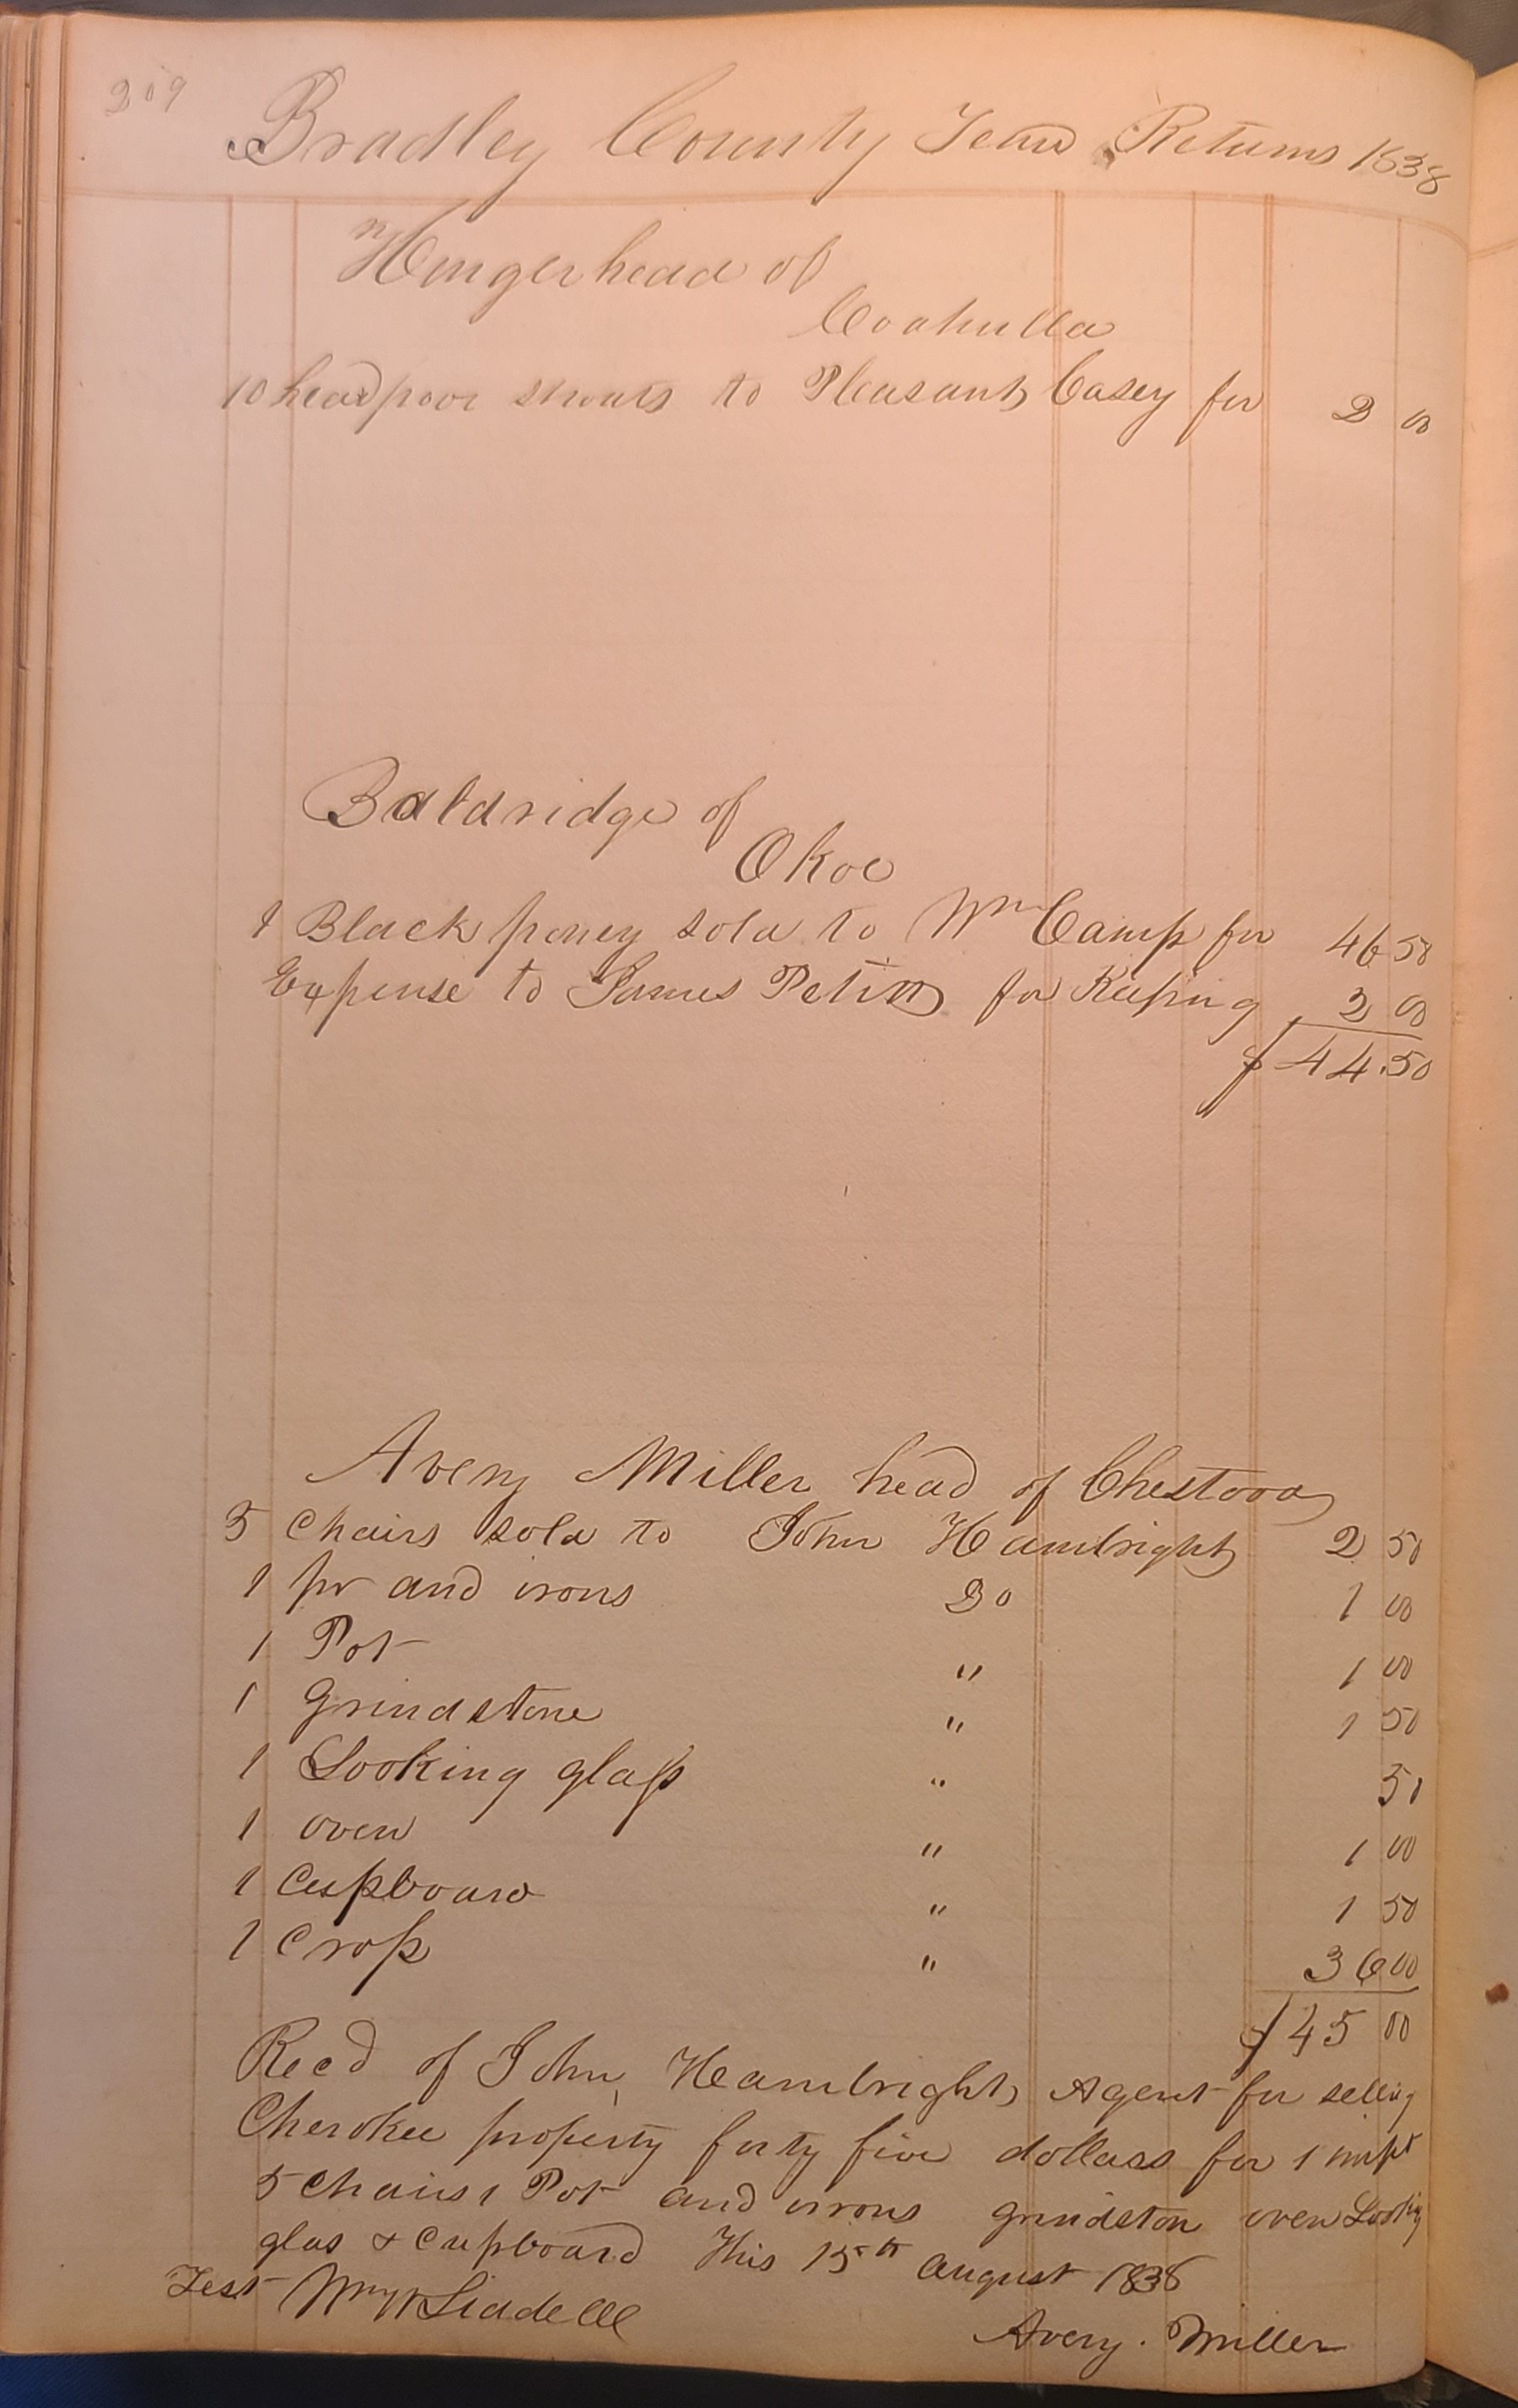 209
Bradley County Tenn Returns 1838
Hungerhead of
Coahulla
10 head poor shoats to Pleasant Casey for 2 00
Baldridge of
Okoe
1 Black poney sold to Wm Camp for 46 50
Expense to James Petitt for Keeping 2 00
$ 44.50
Avery Miller head of Chestooa
5 Chairs sold to John Hambright 2 50
1 pr and irons Do 1 00
1 Pot " 1 00
1 Grindstone " 1 50
1 Looking glass " 50
1 oven " 1 00
1 Cupboard " 1 50
1 Crop " 36 00
$ 45 00
Recd of John Hambright Agent for selling
Cherokee property forty five dollars for 1
5 Chairs 1 Pot and irons grindston oven Looking
glas & Cupboard This 15th August 1838
Test Wm Liddell
Avery . Miller